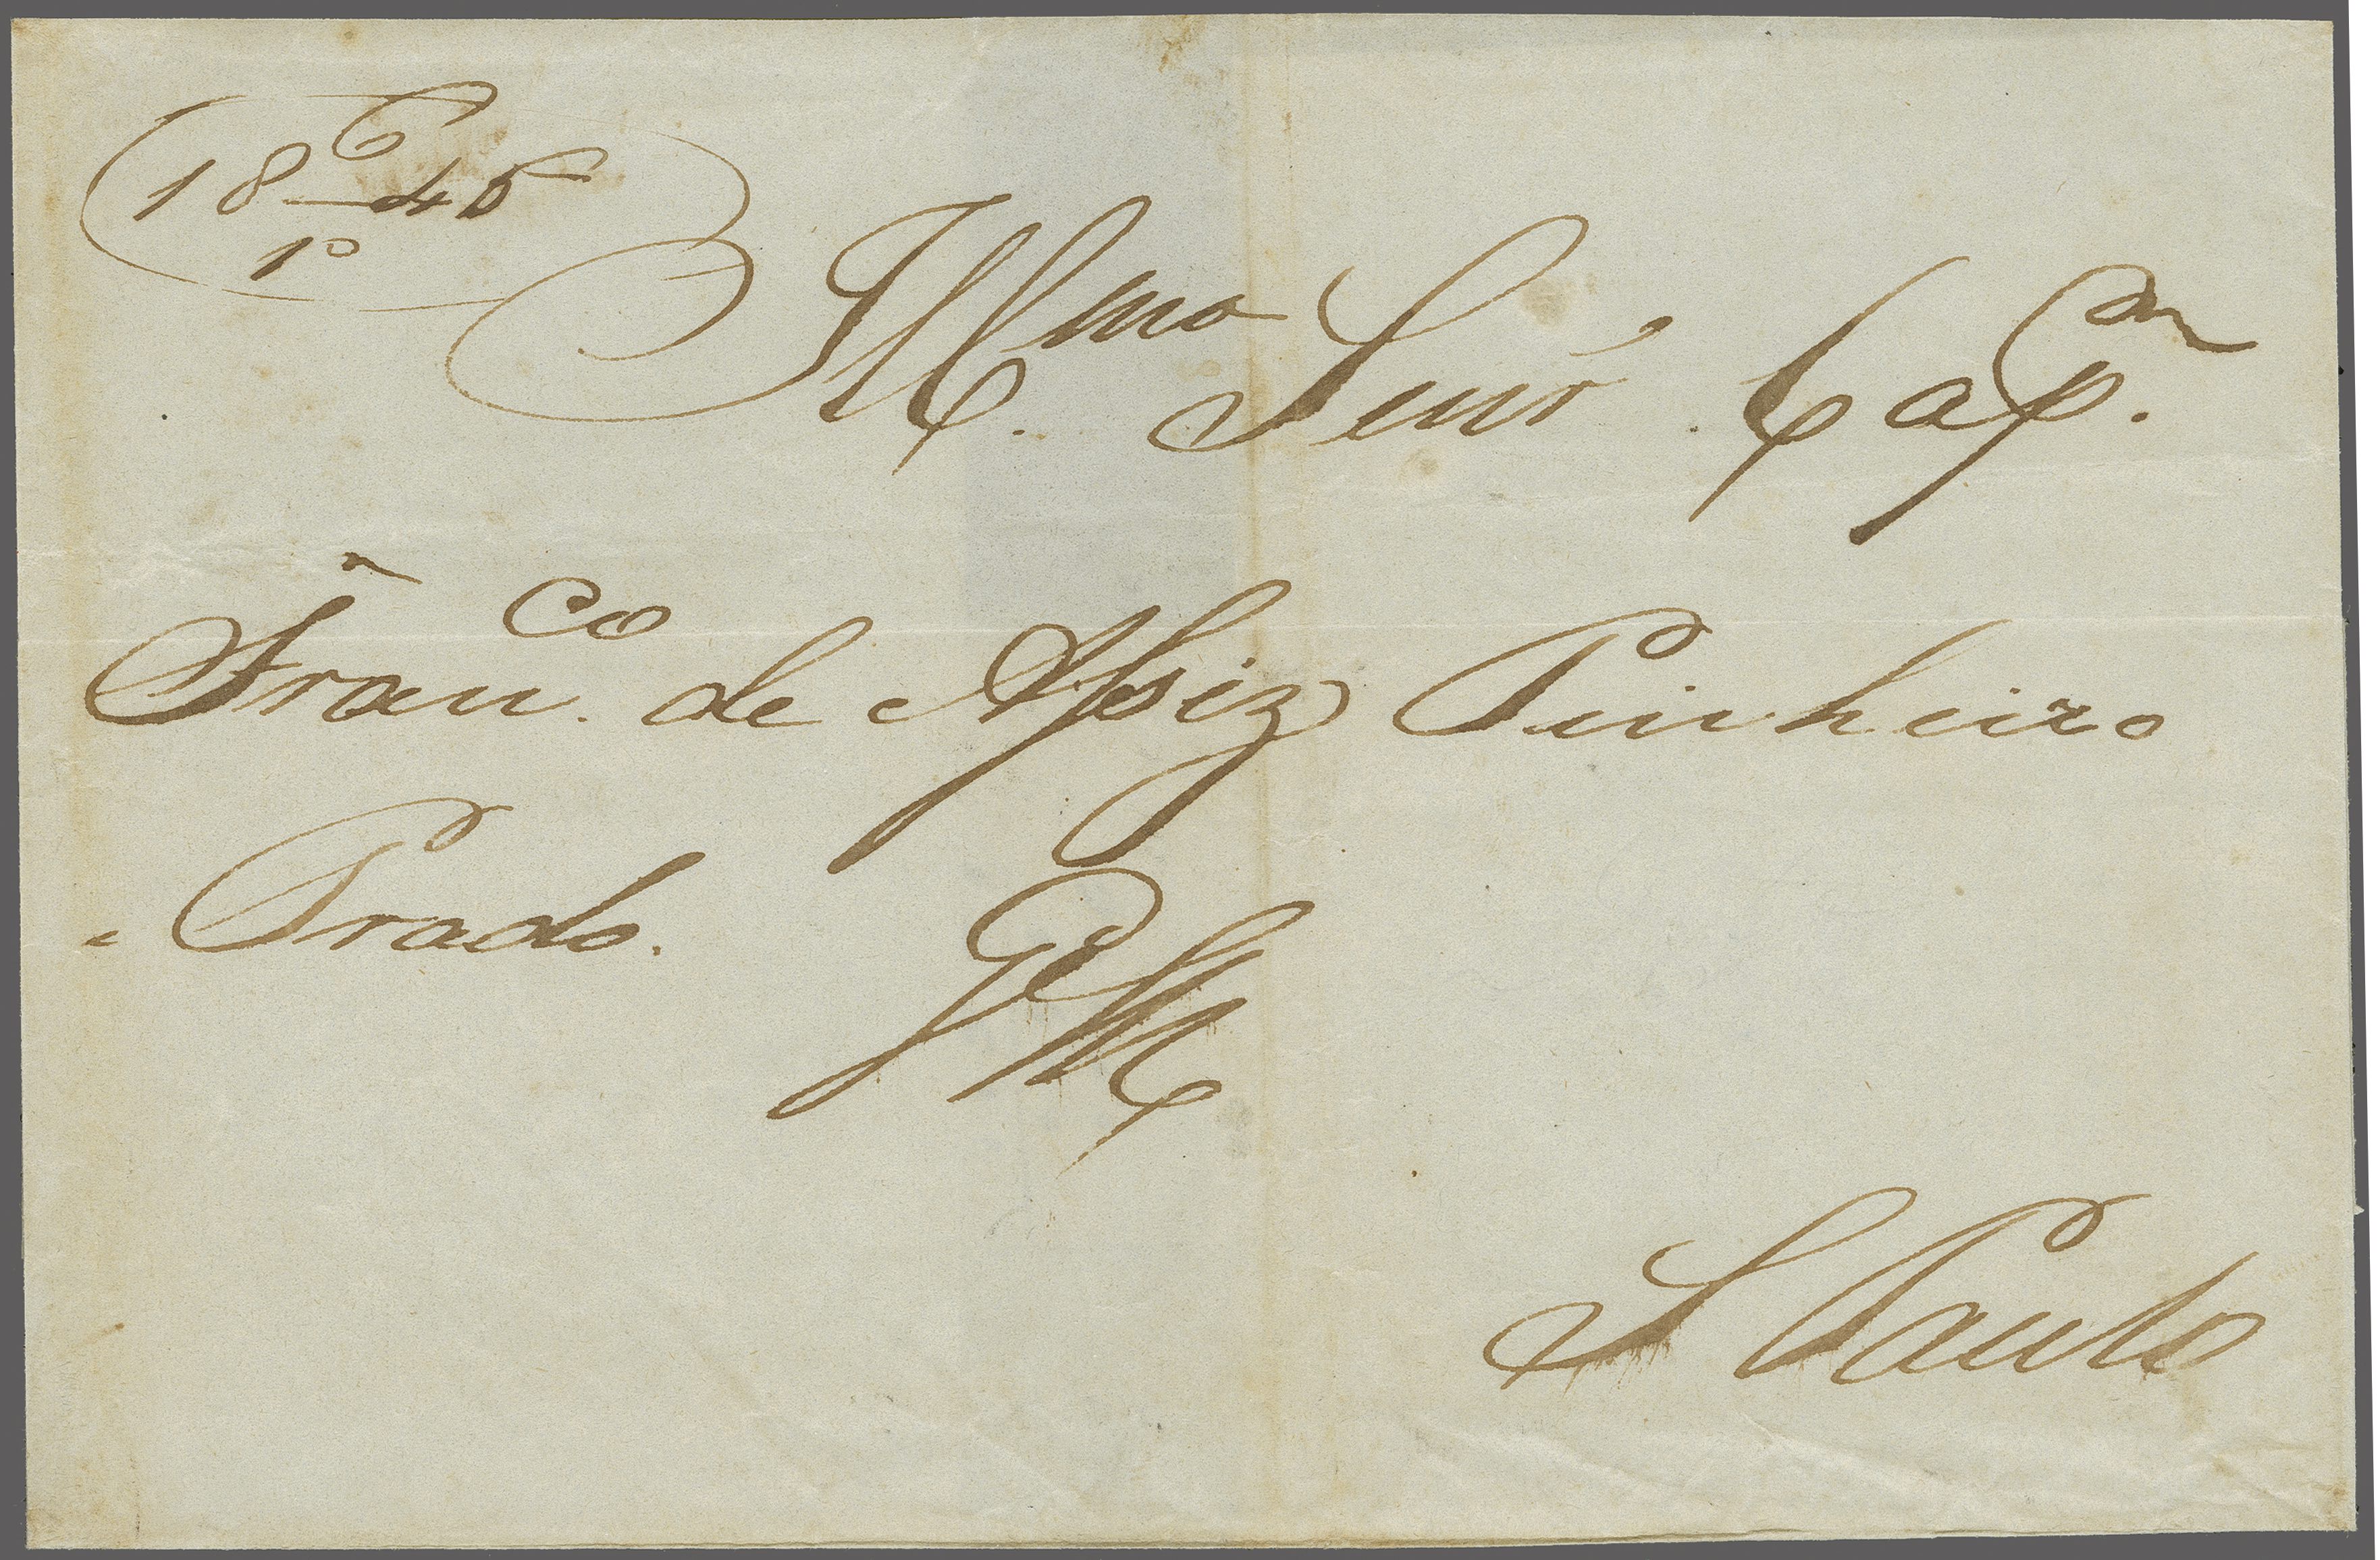 6
18 45
1º
Illmo. Senr. Capam.
Franco. de Assiz Pinheiro
e Prado.
GM
S Paulo